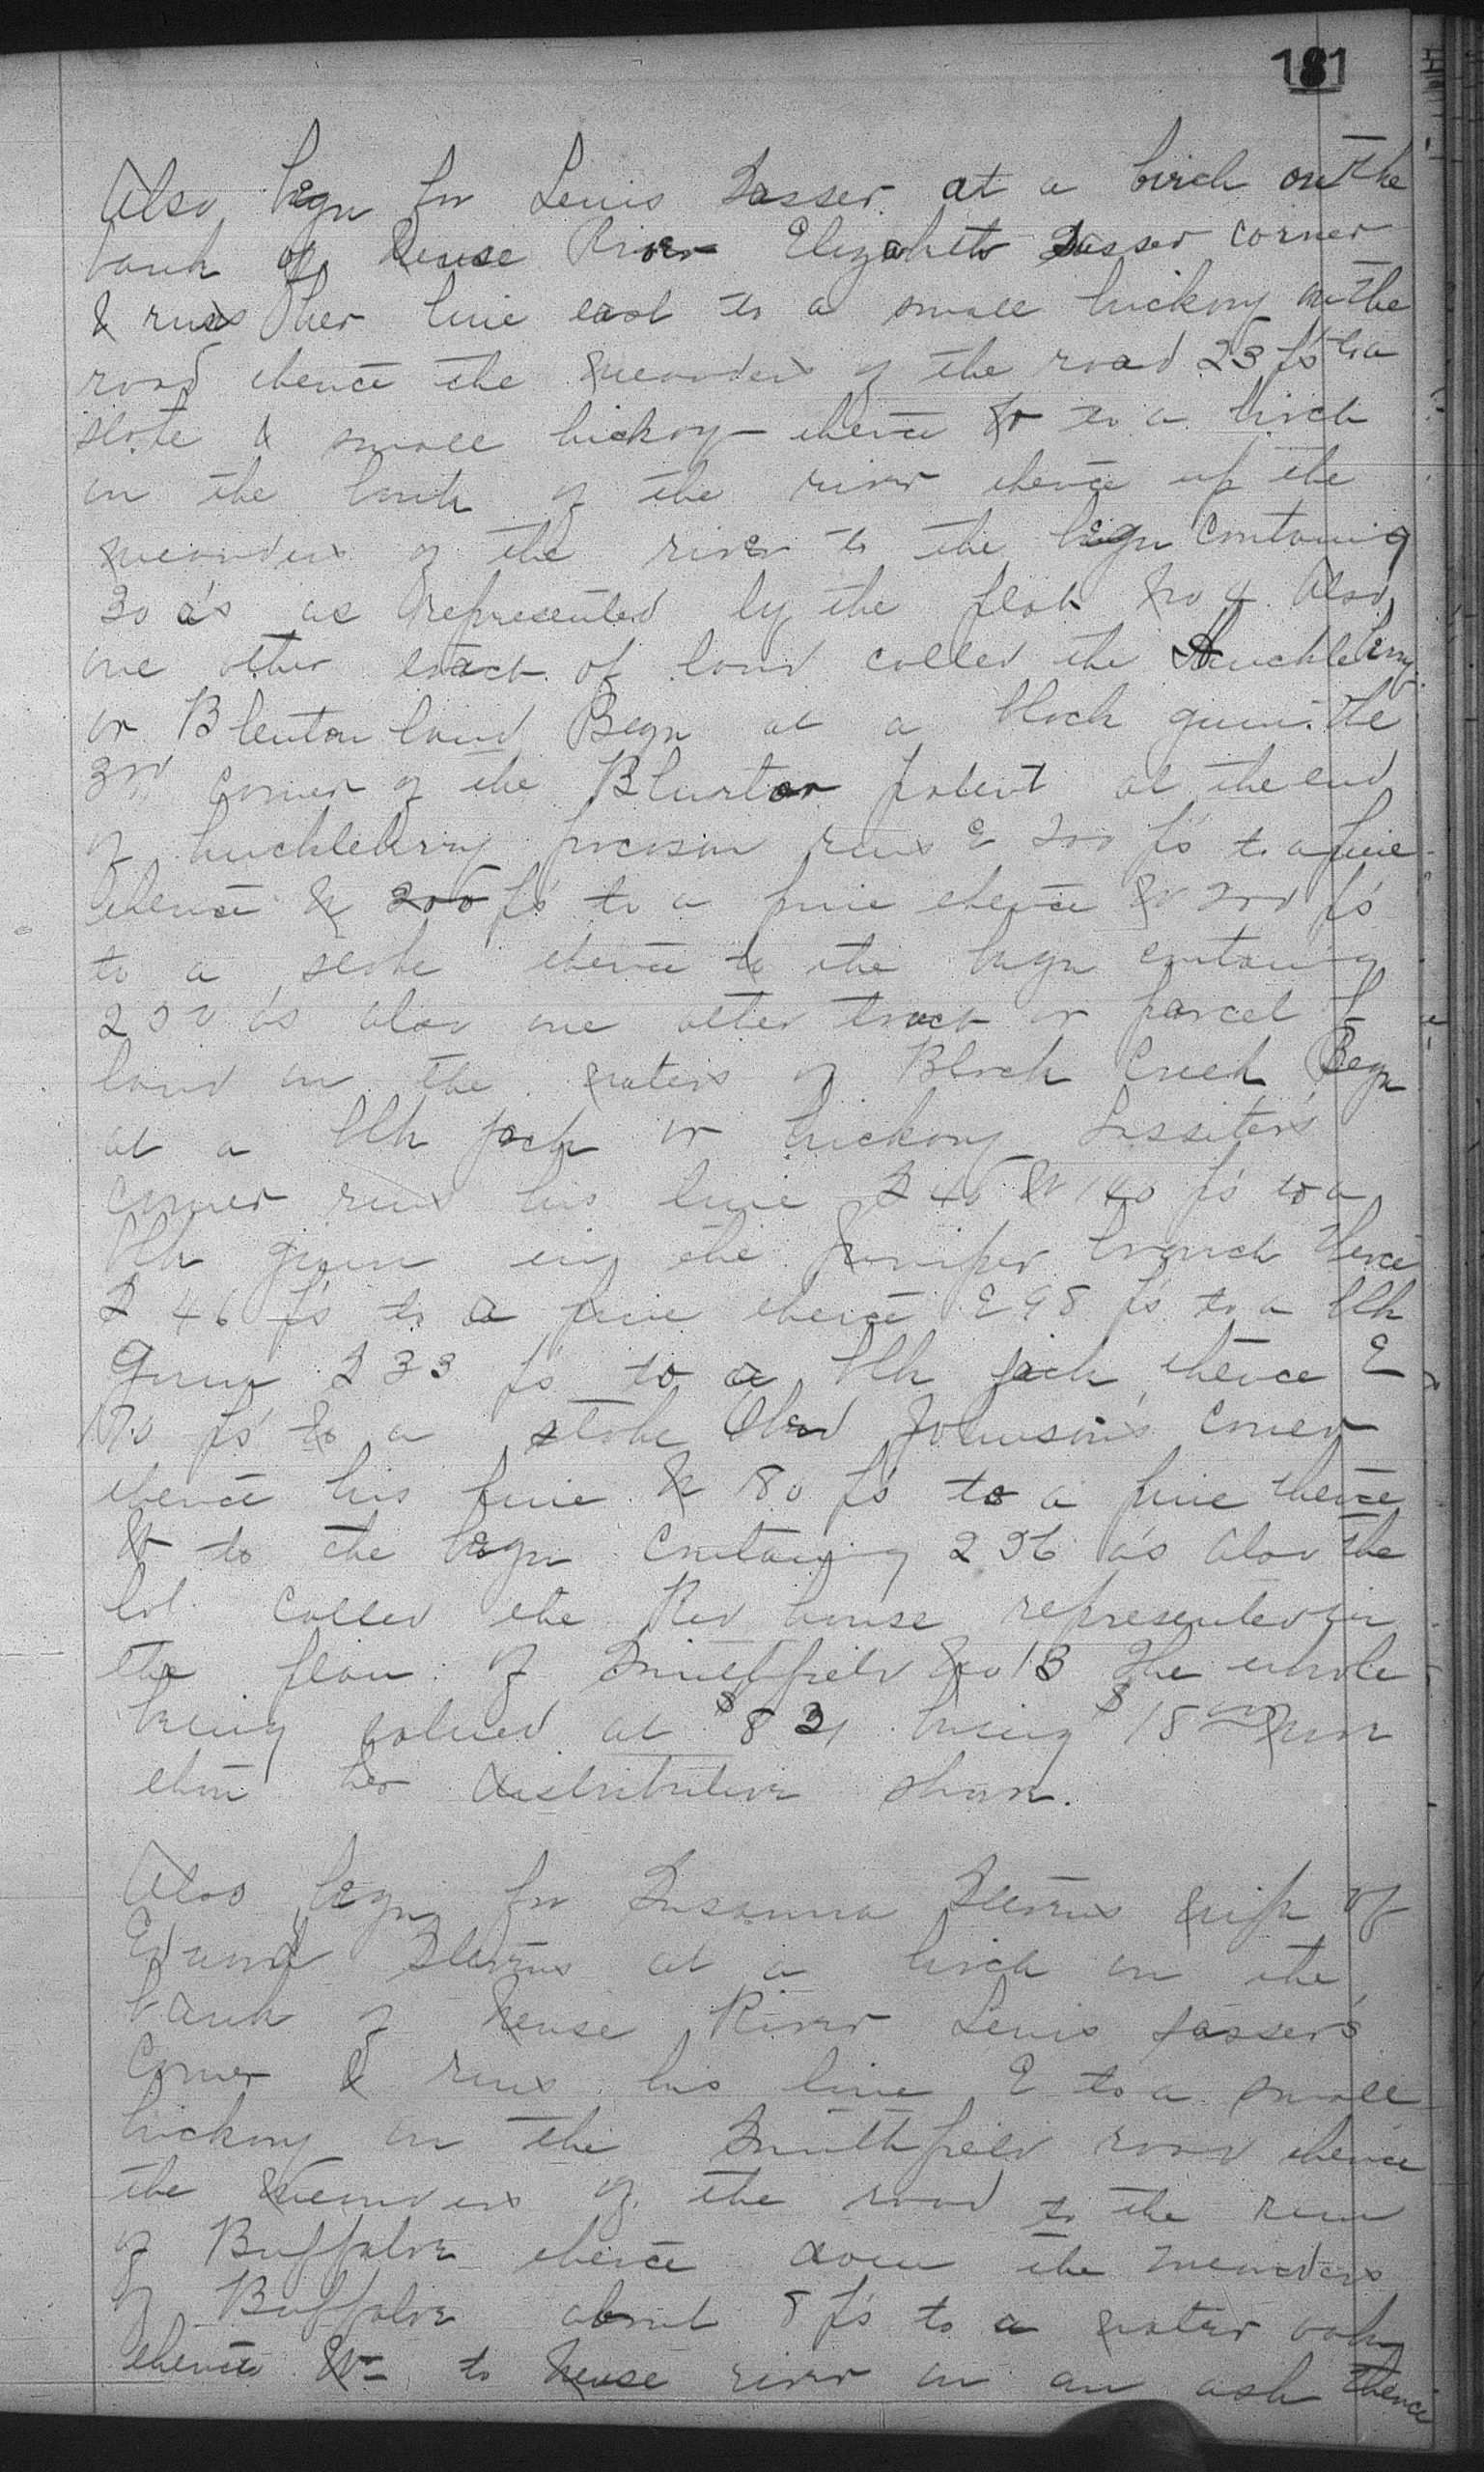 181
Also begn for Lewis Sasser at a birch on the
bank of Neuse River Elizabeth Sasser corner
& runs her line east to a small hickory on the
road thence the meanders of the road 23 ps to a
stake & small hickory thence W to a birch
on the bank of the river thence up the
meanders of the river to the begn containing
30 a's as represented by the plat No 4 Also
one other tract of land called the Huckleberry
or Blenton land Begn at a black gum the
3rd corner of the Blurton patent at the end
of huckleberry pocoson runs E 200 ps to a pine
thence N 200 ps to a pine thence W 200 ps
to a stake thence to the begn containing
250 a's also one other tract or parcel of
land on the waters of Black Creek Begn
at a blk jack or hickory Lassiter's
corner runs his line S 45 W 140 ps to a
blk gum in the Juniper branch thence
S 46 ps to a pine thence E 98 ps to a blk
gum S 33 ps to a blk jack thence E
170 ps to a stake Johnson's corner
thence his line N 180 ps to a pine thence
W to the begn containing 236 a's also the
lot called the Red house represented in
the plan of Smithfield No 13 The whole
being valued at $821 being $15 more
than her distributive share.
Also begn for Susanna Stevens wife of
Edmund Stevens at a birch on the
bank of Neuse River Lewis Sasser's
Corner & runs his line E to a small
hickory on the Smithfield road thence
the meanders of the road to the run
of Buffaloe thence down the meanders
of Buffaloe about 8 ps to a water oak
thence W to Neuse river on an ash thence